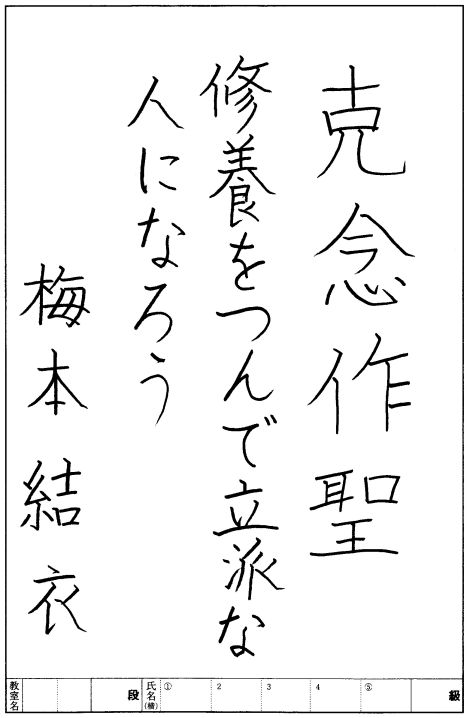 克念作聖
修養をつんで立派な
人になろう
梅本結衣
教室名 段 氏名(楷) ① 2 3 4 ⑤ 級